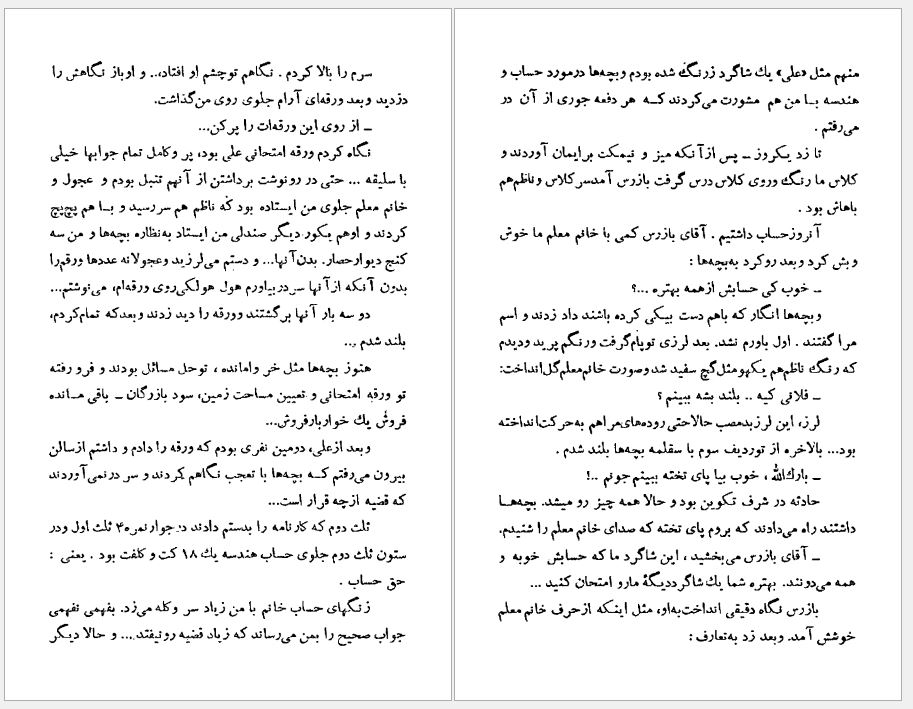 سرم را بالا کردم . نگاهم توچشم او افتاد،.. و اوباز نگاهش را
دزدید وبعد ورقه‌ای آرام جلوی روی من‌گذاشت.
ــ از روی این ورقه‌ات را پرکن...
نگاه کردم ورقه امتحانی علی بود، پر وکامل تمام جوابها خیلی
با سلیقه ... حتی در رونوشت برداشتن از آنهم تنبل بودم و عجول و
خانم معلم جلوی من ایستاده بود که ناظم هم سر رسید و بــا هم پچ‌پچ
کردند و اوهم یکور دیگر صندلی من ایستاد به‌نظاره بچه‌ها و من سه
کنج دیوارحصار. بدن آنها... و دستم می‌لرزید وعجولانه عددها ورقم‌را
بدون آنکه ازآنها سردربیاورم هول هولکی‌روی ورقه‌ام، می‌نوشتم...
دو سه بار آنها برگشتند وورقه را دید زدند وبعدکه تمام‌کردم،
بلند شدم ...
هنوز بچه‌ها مثل خر وامانده ، توحل مسائل بودند و فرو رفته
تو ورقه امتحانی و تعیین مساحت زمین، سود بازرگان ــ باقی مــانده
فروش یك خواربارفروش...
وبعد ازعلی، دومین نفری بودم که ورقه را دادم و داشتم ازسالن
بیرون می‌رفتم کــه بچه‌ها با تعجب نگاهم کردند و سر درنمی‌آوردند
که قضیه ازچه قرار است...
ثلث دوم که کارنامه را بدستم دادند درجوار نمره۴ ثلث اول ودر
ستون ثلث دوم جلوی حساب هندسه یك ۱۸ کت و کلفت بود . یعنی :
حق حساب .
زنگهای حساب خانم با من زیاد سر وکله می‌زد. بفهمی نفهمی
جواب صحیح را بمن می‌رساند که زیاد قضیه رونیفتد... و حالا دیگر
منهم مثل «علی» یك شاگرد زرنگ شده بودم وبچه‌ها درمورد حساب و
هندسه بــا من هم مشورت می‌کردند کــه هر دفعه جوری از آن در
می‌رفتم .
تا زد یکروز ــ پس ازآنکه میز و نیمکت برایمان آوردند و
کلاس ما رنگ وروی کلاس درس گرفت بازرس آمدسرکلاس وناظم‌هم
باهاش بود .
آنروزحساب داشتیم . آقای بازرس کمی با خانم معلم ما خوش
وبش کرد وبعد روکرد به‌بچه‌ها :
ــ خوب کی حسابش ازهمه بهتره ...؟
وبچه‌ها انگار که باهم دست بیکی کرده باشند داد زدند و اسم
مرا گفتند . اول باورم نشد. بعد لرزی توپام‌گرفت ورنگم پرید ودیدم
که رنگ ناظم‌هم یکهومثل‌گچ سفید شدوصورت خانم‌معلم‌گل‌انداخت:
ــ فلانی کیه .. بلند بشه ببینم ؟
لرز، این لرزبدمصب حالاحتی روده‌های‌مراهم به‌حرکت‌انداخته
بود... بالاخره از توردیف سوم با سقلمه بچه‌ها بلند شدم .
ــ بارك‌الله ، خوب بیا پای تخته ببینم جونم ..!
حادثه در شرف تکوین بود و حالا همه چیز رو میشد. بچه‌هــا
داشتند راه می‌دادند که بروم پای تخته که صدای خانم معلم را شنیدم.
ــ آقای بازرس می‌بخشید ، این شاگرد ما که حسابش خوبه و
همه می‌دونند. بهتره شما یك شاگرددیگهٔ مارو امتحان کنید ...
بازرس نگاه دقیقی انداخت‌به‌او، مثل اینکه ازحرف خانم معلم
خوشش آمد. وبعد زد به‌تعارف :